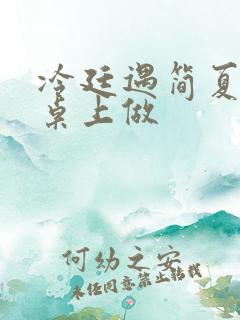 冷廷遇简夏
桌上做
何幼之安
未经同意禁止转载